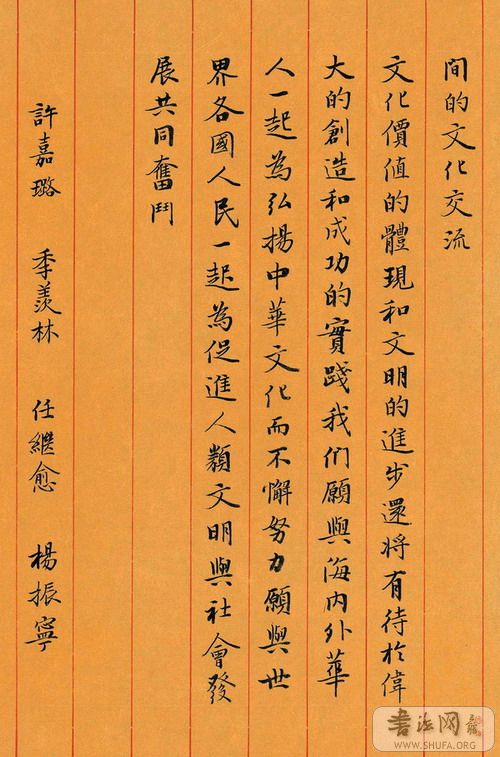 間的文化交流
文化價值的體現和文明的進步還將有待於偉
大的創造和成功的實踐我们願與海内外華
人一起為弘揚中華文化而不懈努力願與世
界各國人民一起為促進人類文明與社會發
展共同奮鬥
許嘉璐 季羨林 任繼愈 楊振寧
書法网
WWW.SHUFA.ORG